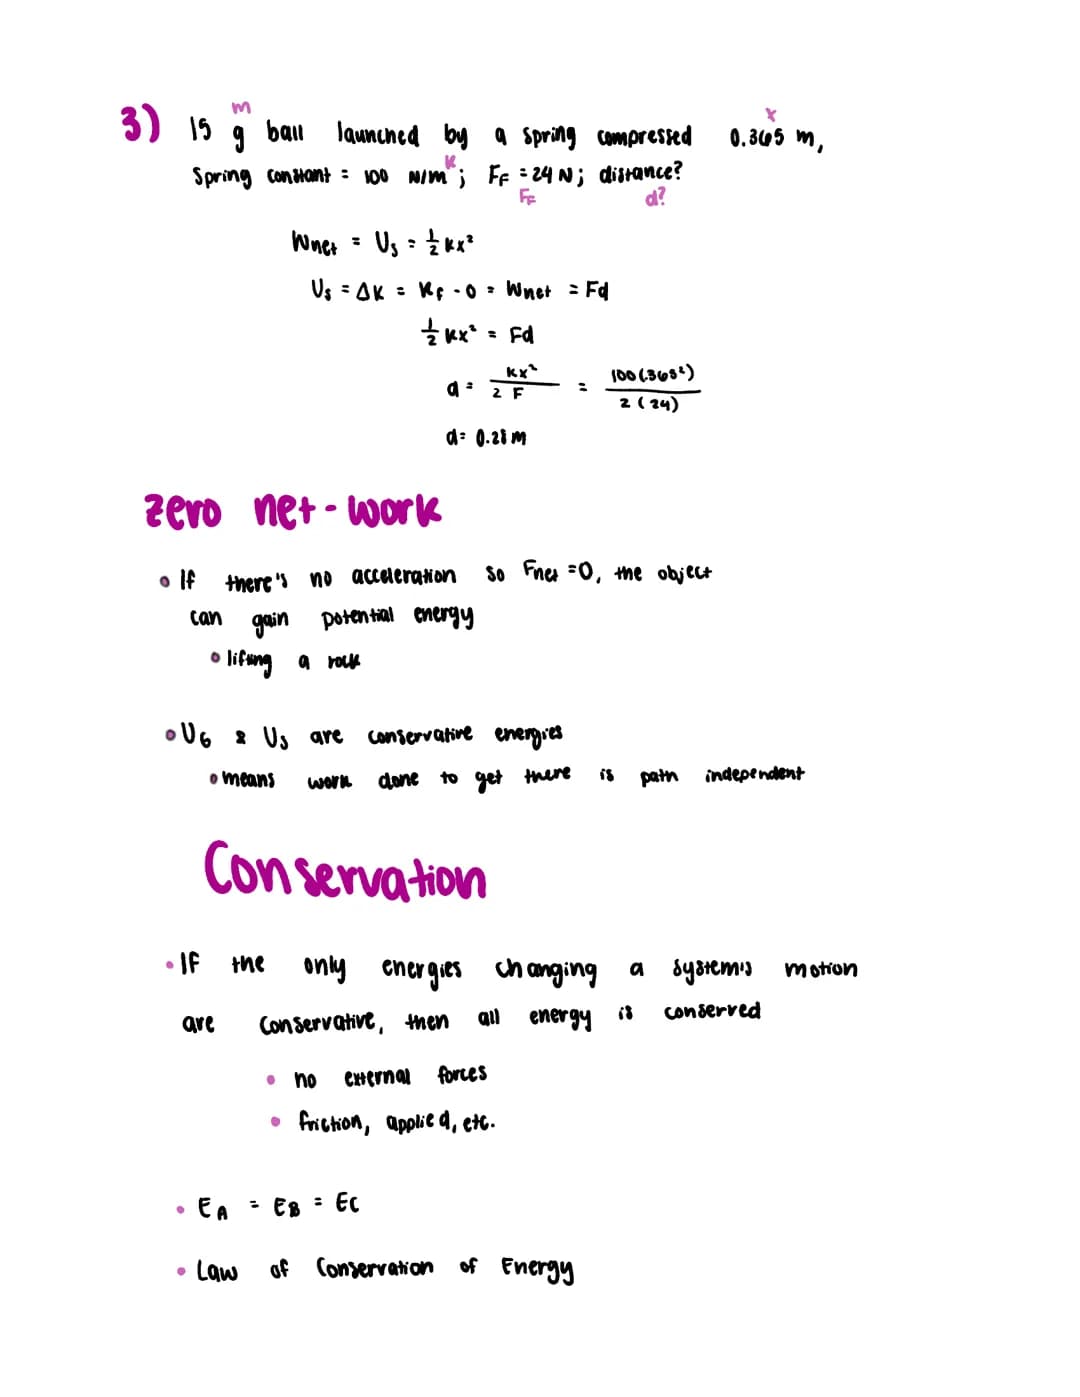 m x
3) 15 g ball launched by a spring compressed 0.365 m,
k
Spring constant = 100 N/m ; FF = 24 N ; distance?
FF d?
Wnet = Us = 1/2 kx²
Us = ΔK = Kf - 0 = Wnet = Fd
1/2 kx² = Fd
d = kx² / 2 F = 100 (.365²) / 2 (24)
d = 0.28 m
zero net - work
• If there's no acceleration so Fnet = 0, the object
can gain potential energy
• lifting a rock
• UG & Us are conservative energies
• means work done to get there is path independent
Conservation
• If the only energies changing a system's motion
are conservative, then all energy is conserved
• no external forces
• friction, applied, etc.
• EA = EB = EC
• Law of Conservation of Energy